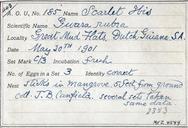 A. O. U. No. 185 Name Scarlet Ibis
Scientific Name Guara rubra
Locality Great Mud Flats, Dutch Guiana S.A.
Date May 30th 1901
Set Mark c/3 Incubation fresh
No. of Eggs in Set 3 Identity correct
Nest Sticks in mangrove, 5 feet from ground
Coll. J. B. Canfield. Several sets taken
same date